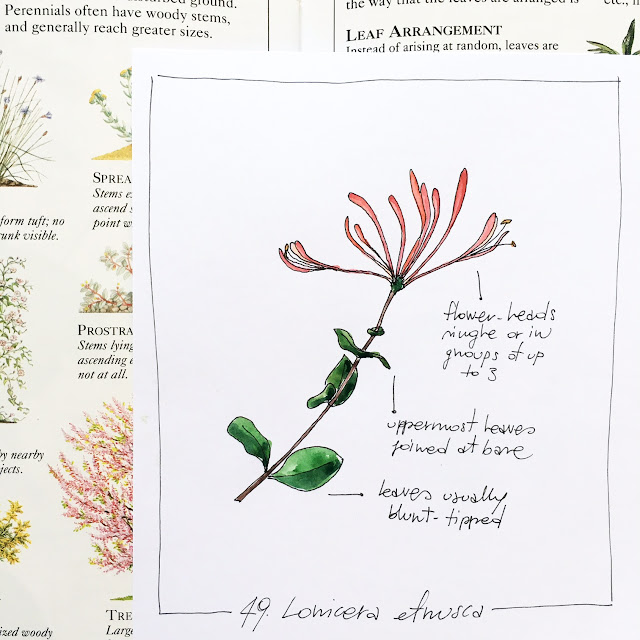 turbed ground.
Perennials often have woody stems,
and generally reach greater sizes.
the way that the leaves are arranged is
etc.,
LEAF ARRANGEMENT
Instead of arising at random, leaves are
SPREA
Stems e
ascend s
point w
form tuft; no
runk visible.
PROSTRA
Stems lying
ascending e
not at all.
by nearby
jects.
TRE
Large
ized woody
flower-heads
single or in
groups of up
to 3
uppermost leaves
joined at base
leaves usually
blunt-tipped
49. Lonicera etrusca